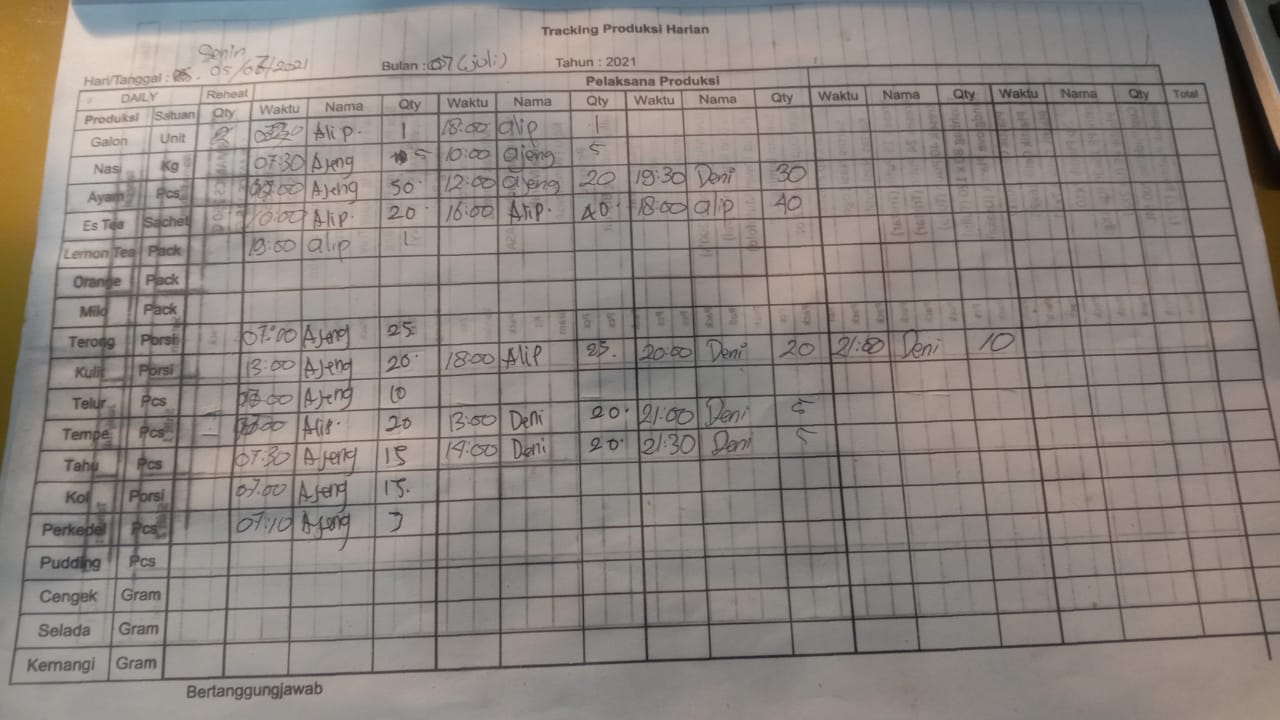 Tracking Produksi Harian
Senin
Hari/Tanggal : 05/07/2021 Bulan : 07 (juli) Tahun : 2021
DAILY Reheat Pelaksana Produksi
Produksi Satuan Qty Waktu Nama Qty Waktu Nama Qty Waktu Nama Qty Waktu Nama Qty Waktu Nama Qty Total
Galon Unit 2 Alip. 1 18:00 alip 1
Nasi Kg 07:30 Ajeng 5 10:00 ajeng 5
Ayam Pcs Ajeng 50 12:00 ajeng 20 19:30 Deni 30
Es Tea Sachet 10:00 Alip. 20 16:00 Alip. 40 18:00 alip 40
Lemon Tea Pack 19:00 alip 1
Orange Pack
Milo Pack
Terong Porsi 07:00 Ajeng 25
Kulit Porsi 13:00 Ajeng 20 18:00 Alip 25. 20:00 Deni 20 21:00 Deni 10
Telur Pcs Ajeng 10
Tempe Pcs Alip. 20 13:00 Deni 20 21:00 Deni 5
Tahu Pcs 07:30 Ajeng 15 14:00 Deni 20 21:30 Deni 5
Kol Porsi 07.00 Ajeng 15.
Perkedel Pcs 07:10 Ajeng 3
Pudding Pcs
Cengek Gram
Selada Gram
Kemangi Gram
Bertanggungjawab